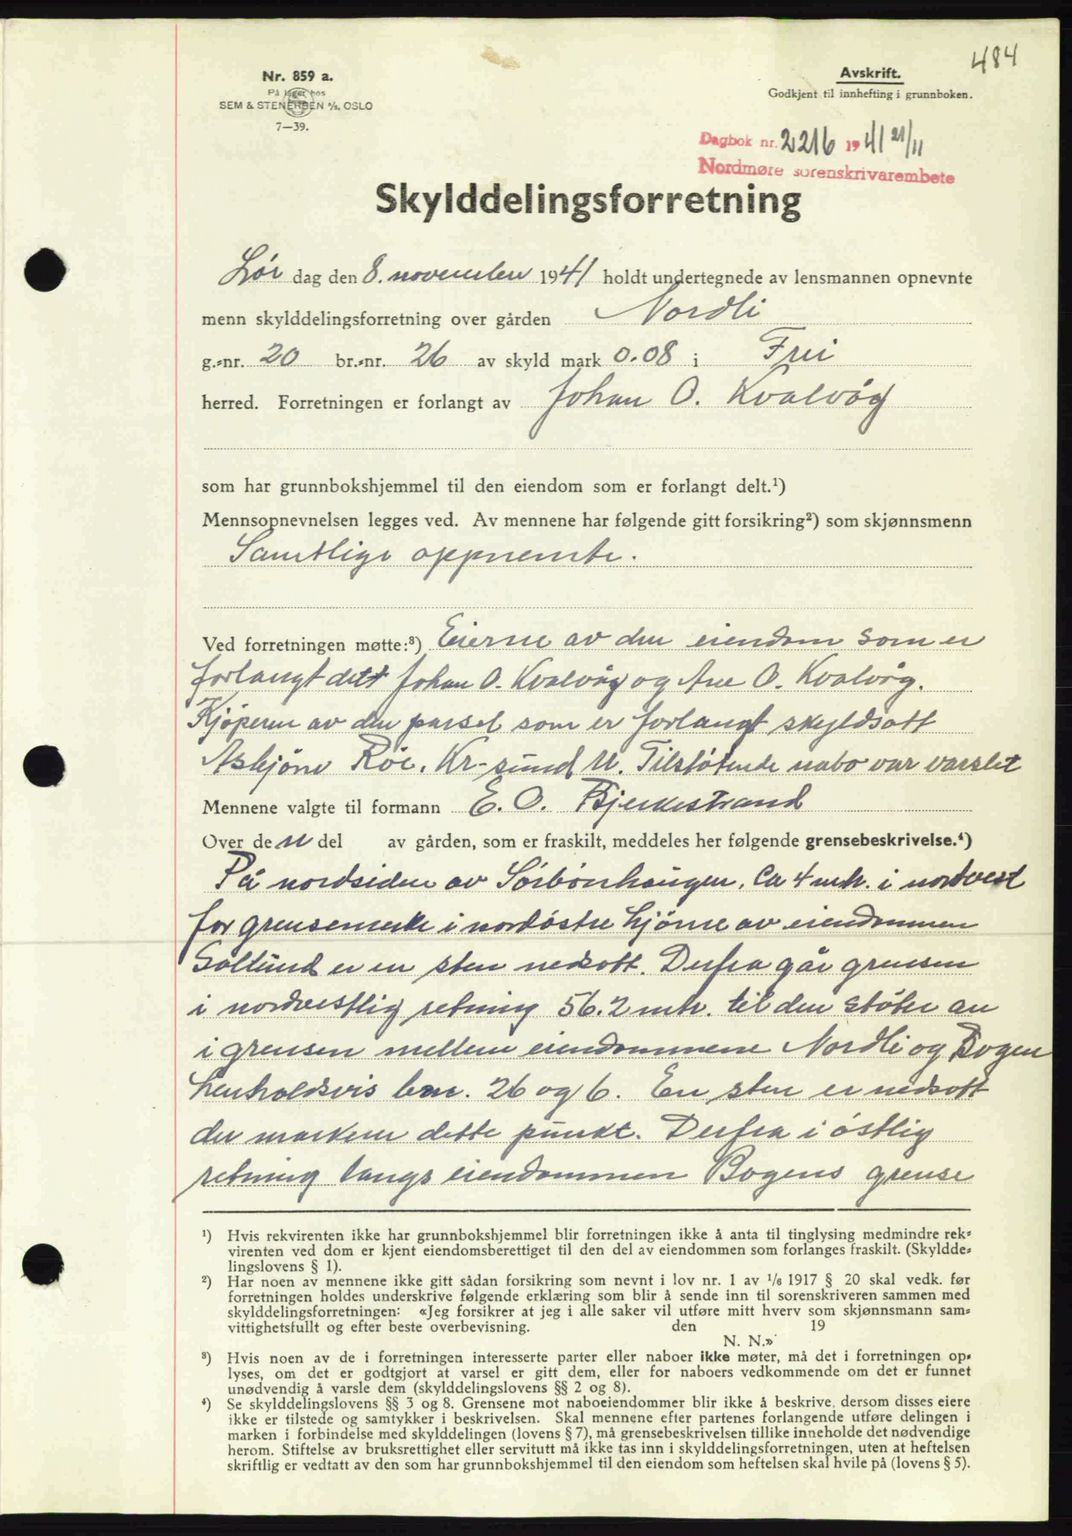 484
Nr. 859 a.
På lager hos
SEM & STENERSEN A/S, OSLO
7—39.
Avskrift.
Godkjent til innhefting i grunnboken.
Dagbok nr. 2216 1941 21/11
Nordmøre sorenskrivarembete
Skylddelingsforretning
Lør dag den 8. november 1941 holdt undertegnede av lensmannen opnevnte
menn skylddelingsforretning over gården Nordli
g.-nr. 20 br.-nr. 26 av skyld mark 0.08 i Frei
herred. Forretningen er forlangt av Johan O. Kvalvåg
som har grunnbokshjemmel til den eiendom som er forlangt delt.¹)
Mennsopnevnelsen legges ved. Av mennene har følgende gitt forsikring²) som skjønnsmenn
Samtlige oppnemte.
Ved forretningen møtte:³) Eierne av den eiendom som er
forlangt delt Johan O. Kvalvåg og Ane O. Kvalvåg.
Kjøperen av den parsel som er forlangt skyldsatt
Asbjørn Röe, Kr-sund N. Tilstøtende nabo var varslet
Mennene valgte til formann E. O. Bjerkestrand
Over den del av gården, som er fraskilt, meddeles her følgende grensebeskrivelse.⁴)
På nordsiden av Sörbönhaugen, ca 4 mtr. i nordvest
for grensemerke i nordöstre hjörne av eiendommen
Soltund er en sten nedsatt. Derfra går grensen
i nordvestlig retning 56.2 mtr. til den støter an
i grensen mellem eiendommene Nordli og Bogen
henholdsvis bnr. 26 og 6. En sten er nedsatt
der markerer dette punkt. Derfra i östlig
retning langs eiendommen Bogens grense
¹) Hvis rekvirenten ikke har grunnbokshjemmel blir forretningen ikke å anta til tinglysing medmindre rek-
virenten ved dom er kjent eiendomsberettiget til den del av eiendommen som forlanges fraskilt. (Skyldde-
lingslovens § 1).
²) Har noen av mennene ikke gitt sådan forsikring som nevnt i lov nr. 1 av 1/6 1917 § 20 skal vedk. før
forretningen holdes underskrive følgende erklæring som blir å sende inn til sorenskriveren sammen med
skylddelingsforretningen: «Jeg forsikrer at jeg i alle saker vil utføre mitt hverv som skjønnsmann sam-
vittighetsfullt og efter beste overbevisning. den 19
N. N.»
³) Hvis noen av de i forretningen interesserte parter eller naboer ikke møter, må det i forretningen op-
lyses, om det er godtgjort at varsel er gitt dem, eller for naboers vedkommende om det er funnet
unødvendig å varsle dem (skylddelingslovens §§ 2 og 8).
⁴) Se skylddelingslovens §§ 3 og 8. Grensene mot naboeiendommer blir ikke å beskrive, dersom disses eiere
ikke er tilstede og samtykker i beskrivelsen. Skal mennene efter partenes forlangende utføre delingen i
marken i forbindelse med skylddelingen (lovens § 7), må grensebeskrivelsen tillike inneholde det nødvendige
herom. Stiftelse av bruksrettighet eller servitutt må ikke tas inn i skylddelingsforretningen, uten at heftelsen
skriftlig er vedtatt av den som har grunnbokshjemmel til den eiendom som heftelsen skal hvile på (lovens § 5).